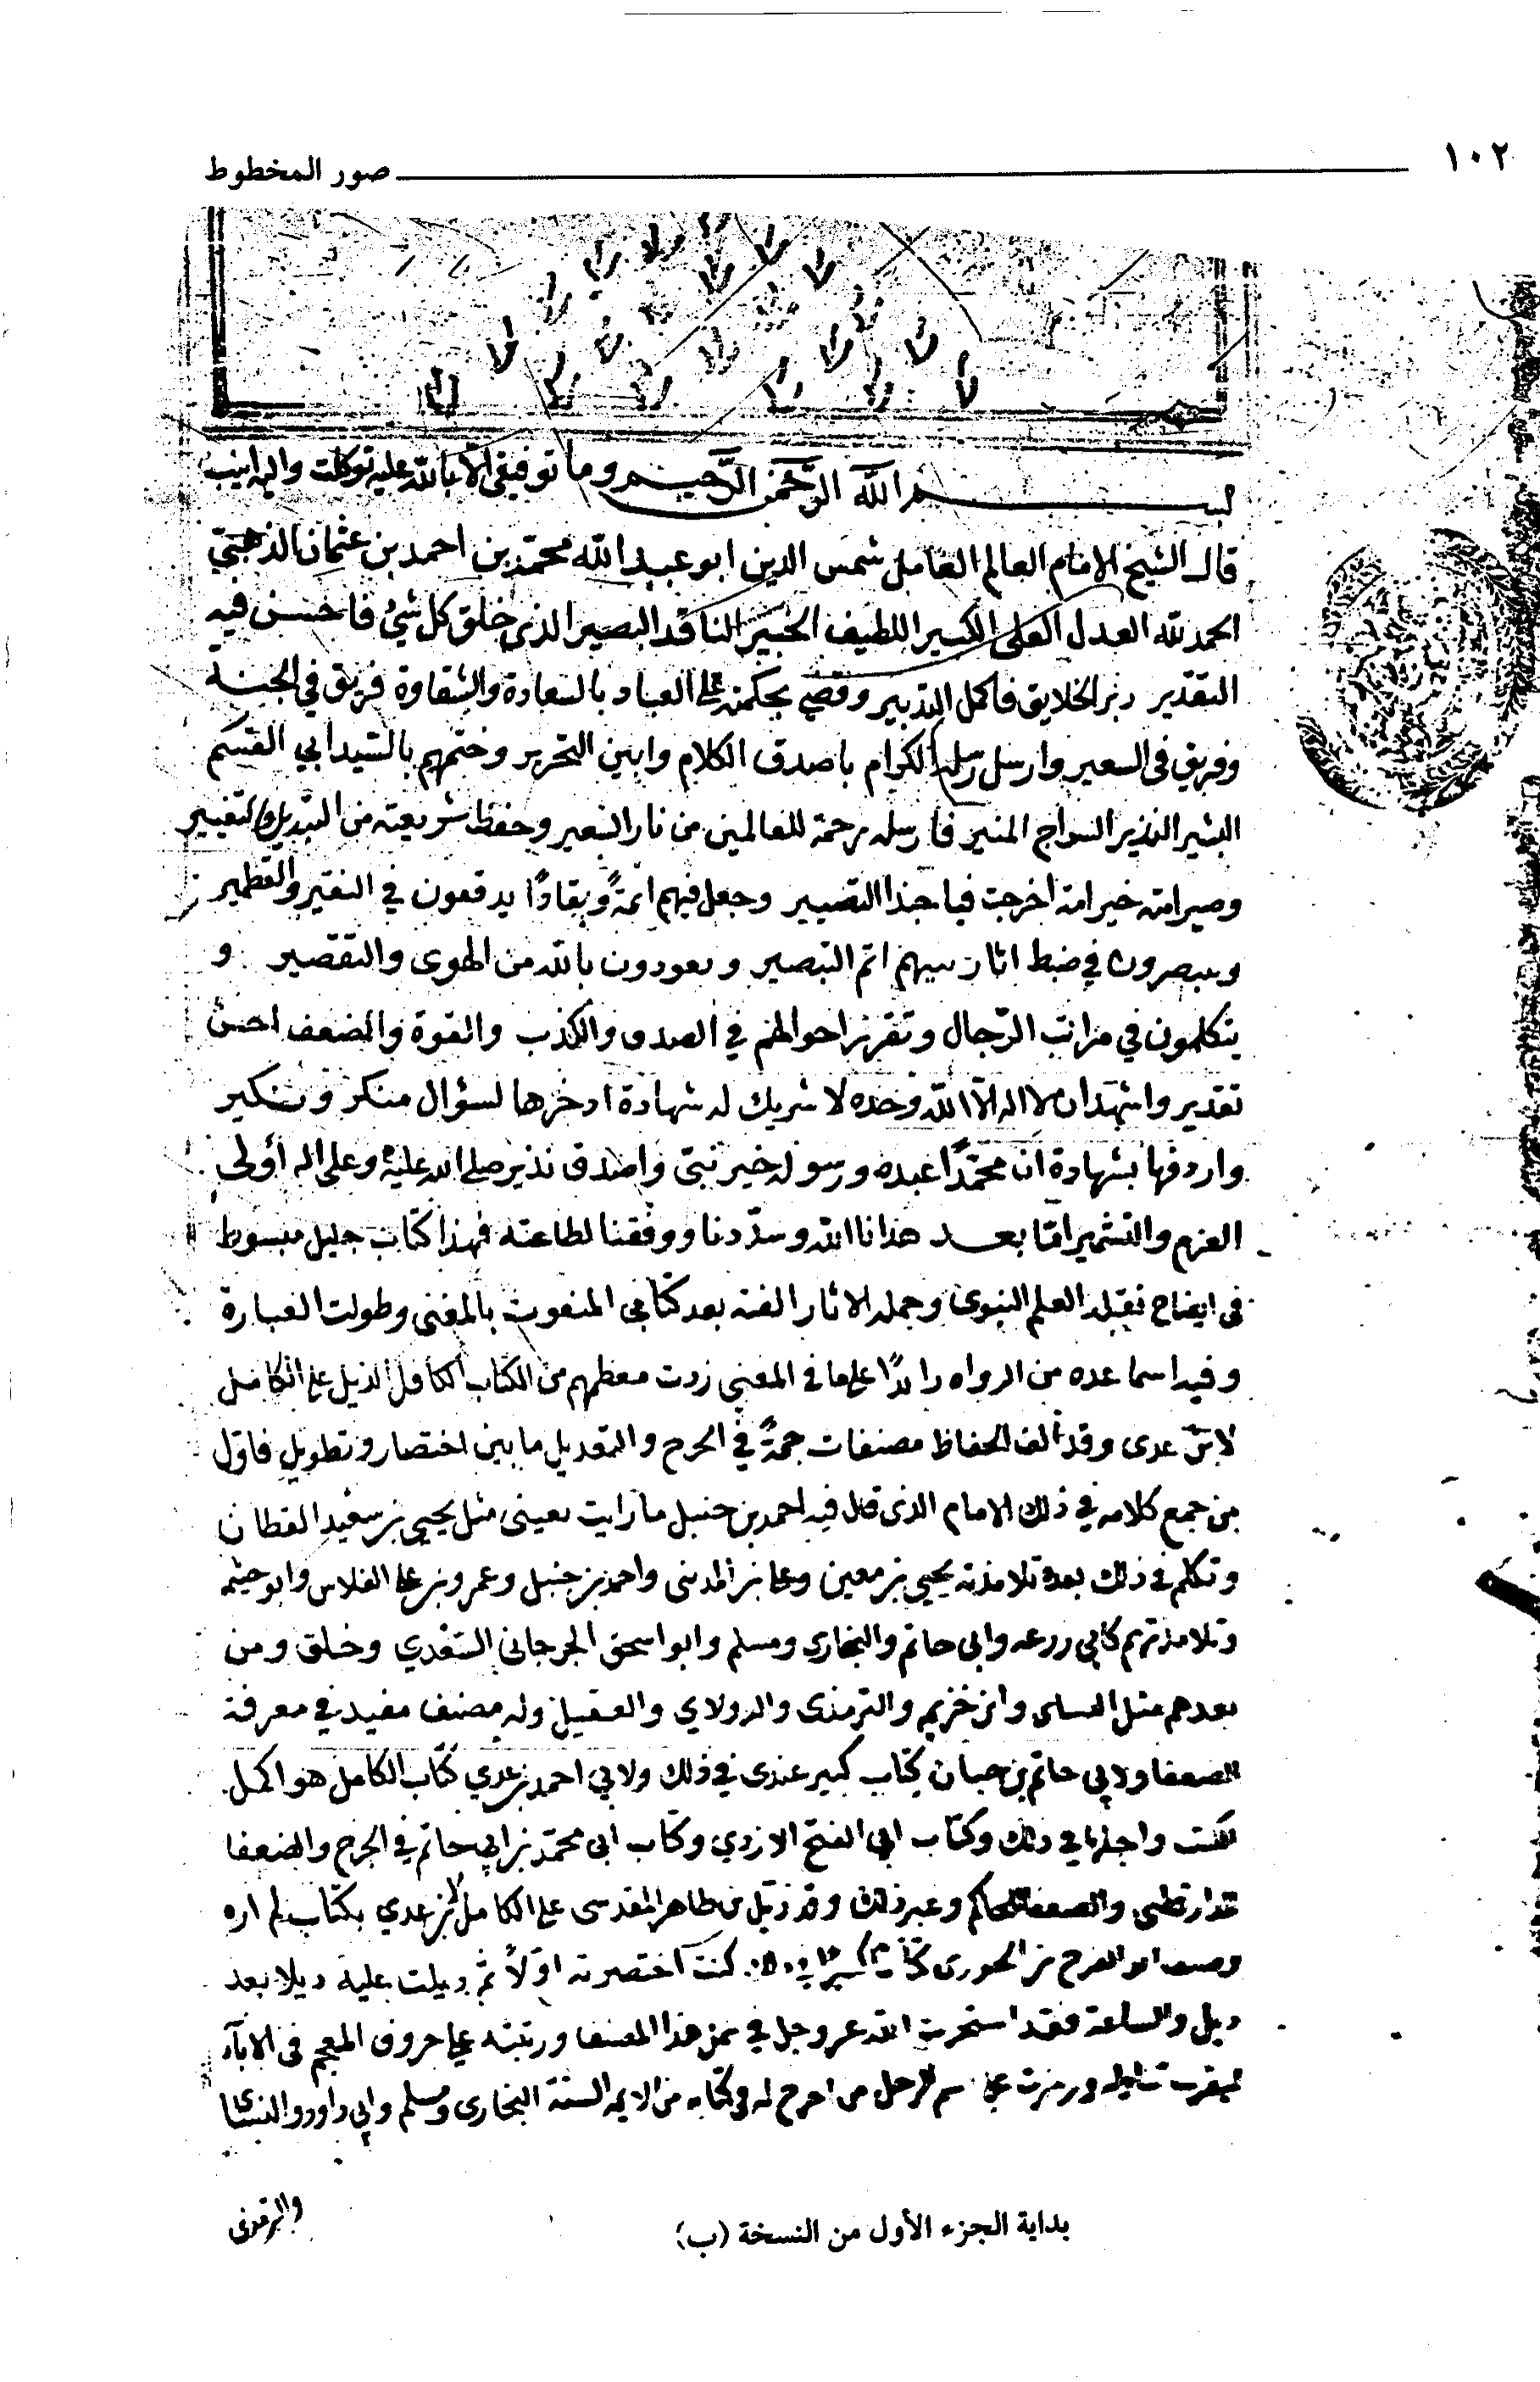 ١٠٢
صور المخطوط
بسم الله الرحمن الرحيم وما توفيقي الا بالله عليه توكلت واليه انيب
قال الشيخ الامام العالم العامل شمس الدين ابو عبد الله محمد بن احمد بن عثمان الذهبي
الحمد لله العدل العلى الكبير اللطيف الخبير الناقد البصير الذى خلق كل شئ فاحسن فيه
التقدير دبر الخلايق فاكمل التدبير وقضى بحكمته على العباد بالسعادة والشقاوة فريق في الجنة
وفريق فى السعير وارسل رسله الكرام باصدق الكلام وابين التحرير وختمهم بالسيد ابي القسم
البشير النذير السراج المنير فارسله رحمة للعالمين من نار السعير وحفظ شريعته من التبديل والتغيير
وصير امته خير امة اخرجت فيا حبذا التصيير وجعل فيهم ائمةً ونقادًا يدققون في النقير والقطمير
ويتبصرون في ضبط اثار نبيهم اتم التبصير ويعوذون بالله من الهوى والتقصير و
يتكلمون في مراتب الرّجال وتقرير احوالهم في الصدق والكذب والقوة والضعف احسن
تقدير واشهد ان لا اله الا الله وحده لا شريك له شهادة ادخرها لسؤال منكر ونكير
واردفها بشهادة ان محمّدًا عبده ورسوله خير نبيّ واصدق نذير صلى الله عليه وعلى اله أولى
العزم والتشمير امّا بعد هدانا الله وسدّدنا ووفقنا لطاعته فهذا كتاب جليل مبسوط
فى ايضاح نقلة العلم النبوى وحملة الاثار الفته بعد كتابى المنعوت بالمغنى وطولت العبارة
وفيه اسما عده من الرواه زائدًا على ما في المغنى زدت معظمهم من الكتاب الكافل الذيل على الكامل
لابن عدى وقد ألف الحفاظ مصنفات جمةً في الجرح والتعديل ما بين اختصار وتطويل فاوّل
من جمع كلامه في ذلك الامام الذى قال فيه احمد بن حنبل ما رايت بعينى مثل يحيى بن سعيد القطان
وتكلم فى ذلك بعده تلامذته يحيى بن معين وعلى بن المدينى واحمد بن حنبل وعمرو بن على الفلاس وابو خيثمه
وتلامذتهم كابي زرعه وابى حاتم والبخارى ومسلم وابو اسحق الجرجانى السعدي وخلق ومن
بعدهم مثل النسائى وابن خزيمه والترمذى والدولابي والعقيلى وله مصنف مفيد في معرفة
الضعفا ولابى حاتم بن حبان كتاب كبير عندى في ذلك ولابي احمد بن عدي كتاب الكامل هو اكمل
الكتب واجلها في ذلك وكتاب ابى الفتح الازدي وكتاب ابى محمّد بن ابي حاتم في الجرح والضعفا
للدارقطنى والضعفا للحاكم وغير ذلك وقد ذيّل بن طاهر المقدسى على الكامل لابن عدي بكتاب لم اره
وصنف ابو الفرج بن الجوزى كتابا كبيرا كنت اختصرته اوّلاً ثم ذيلت عليه ذيلا بعد
ذيل والساعة فقد استخرت الله عز وجل في عمل هذا المصنف ورتبته على حروف المعجم فى الابآء
ليقرب تناوله ورمزت على اسم الرجل من اخرج له فى كتابه من الايمة الستة البخارى ومسلم وابى داود والنسائى
والترمذى
بداية الجزء الأول من النسخة (ب)